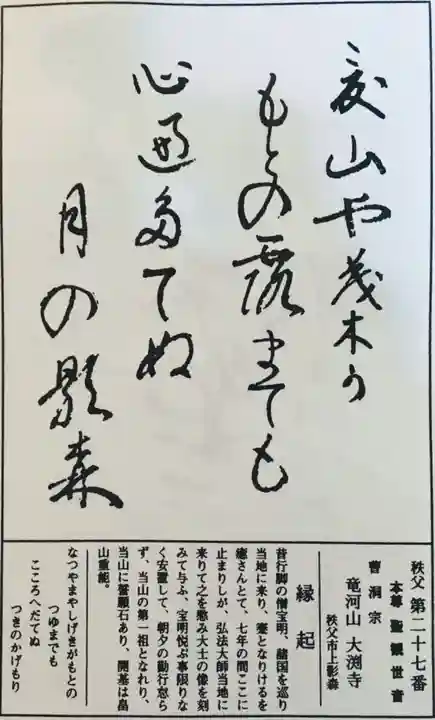 夏山や茂木可
もとの露まても
心遍多てぬ
月の影森
秩父 第二十七番
本尊 聖観世音
曹洞宗
竜河山 大渕寺
秩父市上影森
縁起
昔行脚の僧宝明、諸国を巡り
当地に来り、蹇となりけるを
癒さんとて、七年の間ここに
止まりしが、弘法大師当地に
来りて之を愍み大士の像を刻
みて与ふ、宝明悦ぶ事限りな
く安置して、朝夕の勤行怠ら
ず、当山の第一祖となれり、
当山に誓願石あり、開基は畠
山重能。
なつやまやしげきがもとの
つゆまでも
こころへだてぬ
つきのかげもり